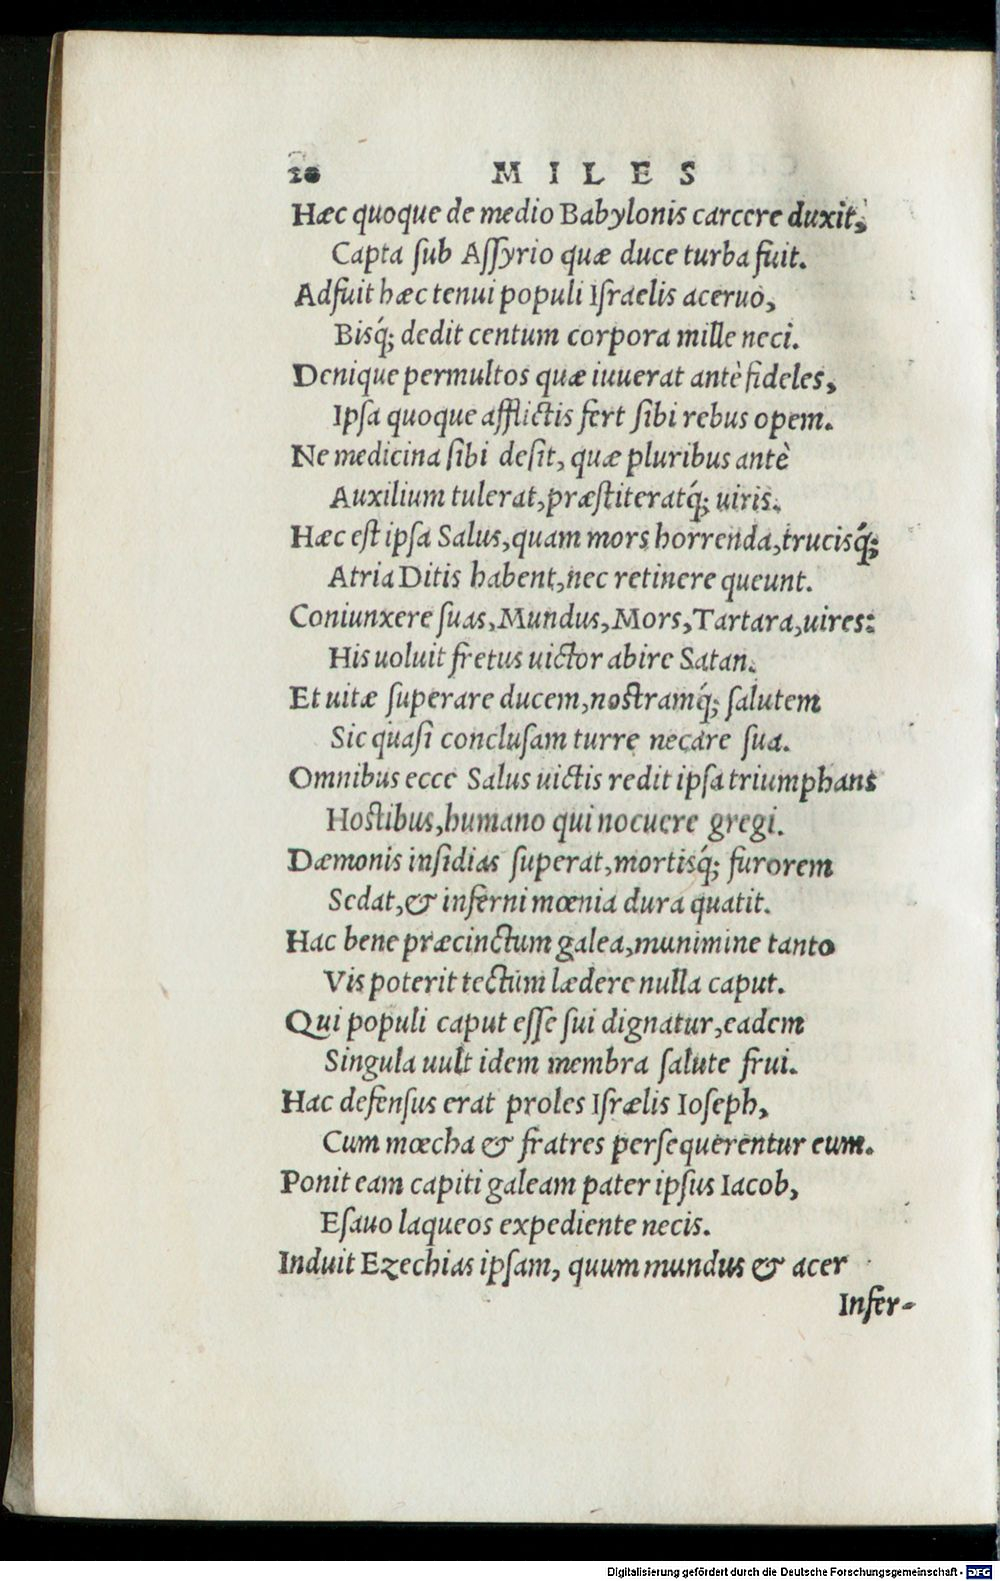 20 MILES
Hæc quoque de medio Babylonis carcere duxit,
Capta ſub Aſſyrio quæ duce turba fuit.
Adfuit hæc tenui populi Iſraelis aceruo,
Bisq́; dedit centum corpora mille neci.
Denique permultos quæ iuuerat antè fideles,
Ipſa quoque afflictis fert ſibi rebus opem.
Ne medicina ſibi deſit, quæ pluribus antè
Auxilium tulerat, præſtiteratq́; uiris.
Hæc eſt ipſa Salus, quam mors horrenda, trucisq́;
Atria Ditis habent, nec retinere queunt.
Coniunxere ſuas, Mundus, Mors, Tartara, uires:
His uoluit fretus uictor abire Satan.
Et uitæ ſuperare ducem, noſtramq́; ſalutem
Sic quaſi concluſam turre necare ſua.
Omnibus ecce Salus uictis redit ipſa triumphans
Hoſtibus, humano qui nocuere gregi.
Dæmonis inſidias ſuperat, mortisq́; furorem
Sedat, & inferni mœnia dura quatit.
Hac bene præcinctum galea, munimine tanto
Vis poterit tectum lædere nulla caput.
Qui populi caput eſſe ſui dignatur, eadem
Singula uult idem membra ſalute frui.
Hac defenſus erat proles Iſrælis Ioſeph,
Cum mœcha & fratres perſequerentur eum.
Ponit eam capiti galeam pater ipſus Iacob,
Eſauo laqueos expediente necis.
Induit Ezechias ipſam, quum mundus & acer
Infer-
Digitalisierung gefördert durch die Deutsche Forschungsgemeinschaft - DFG